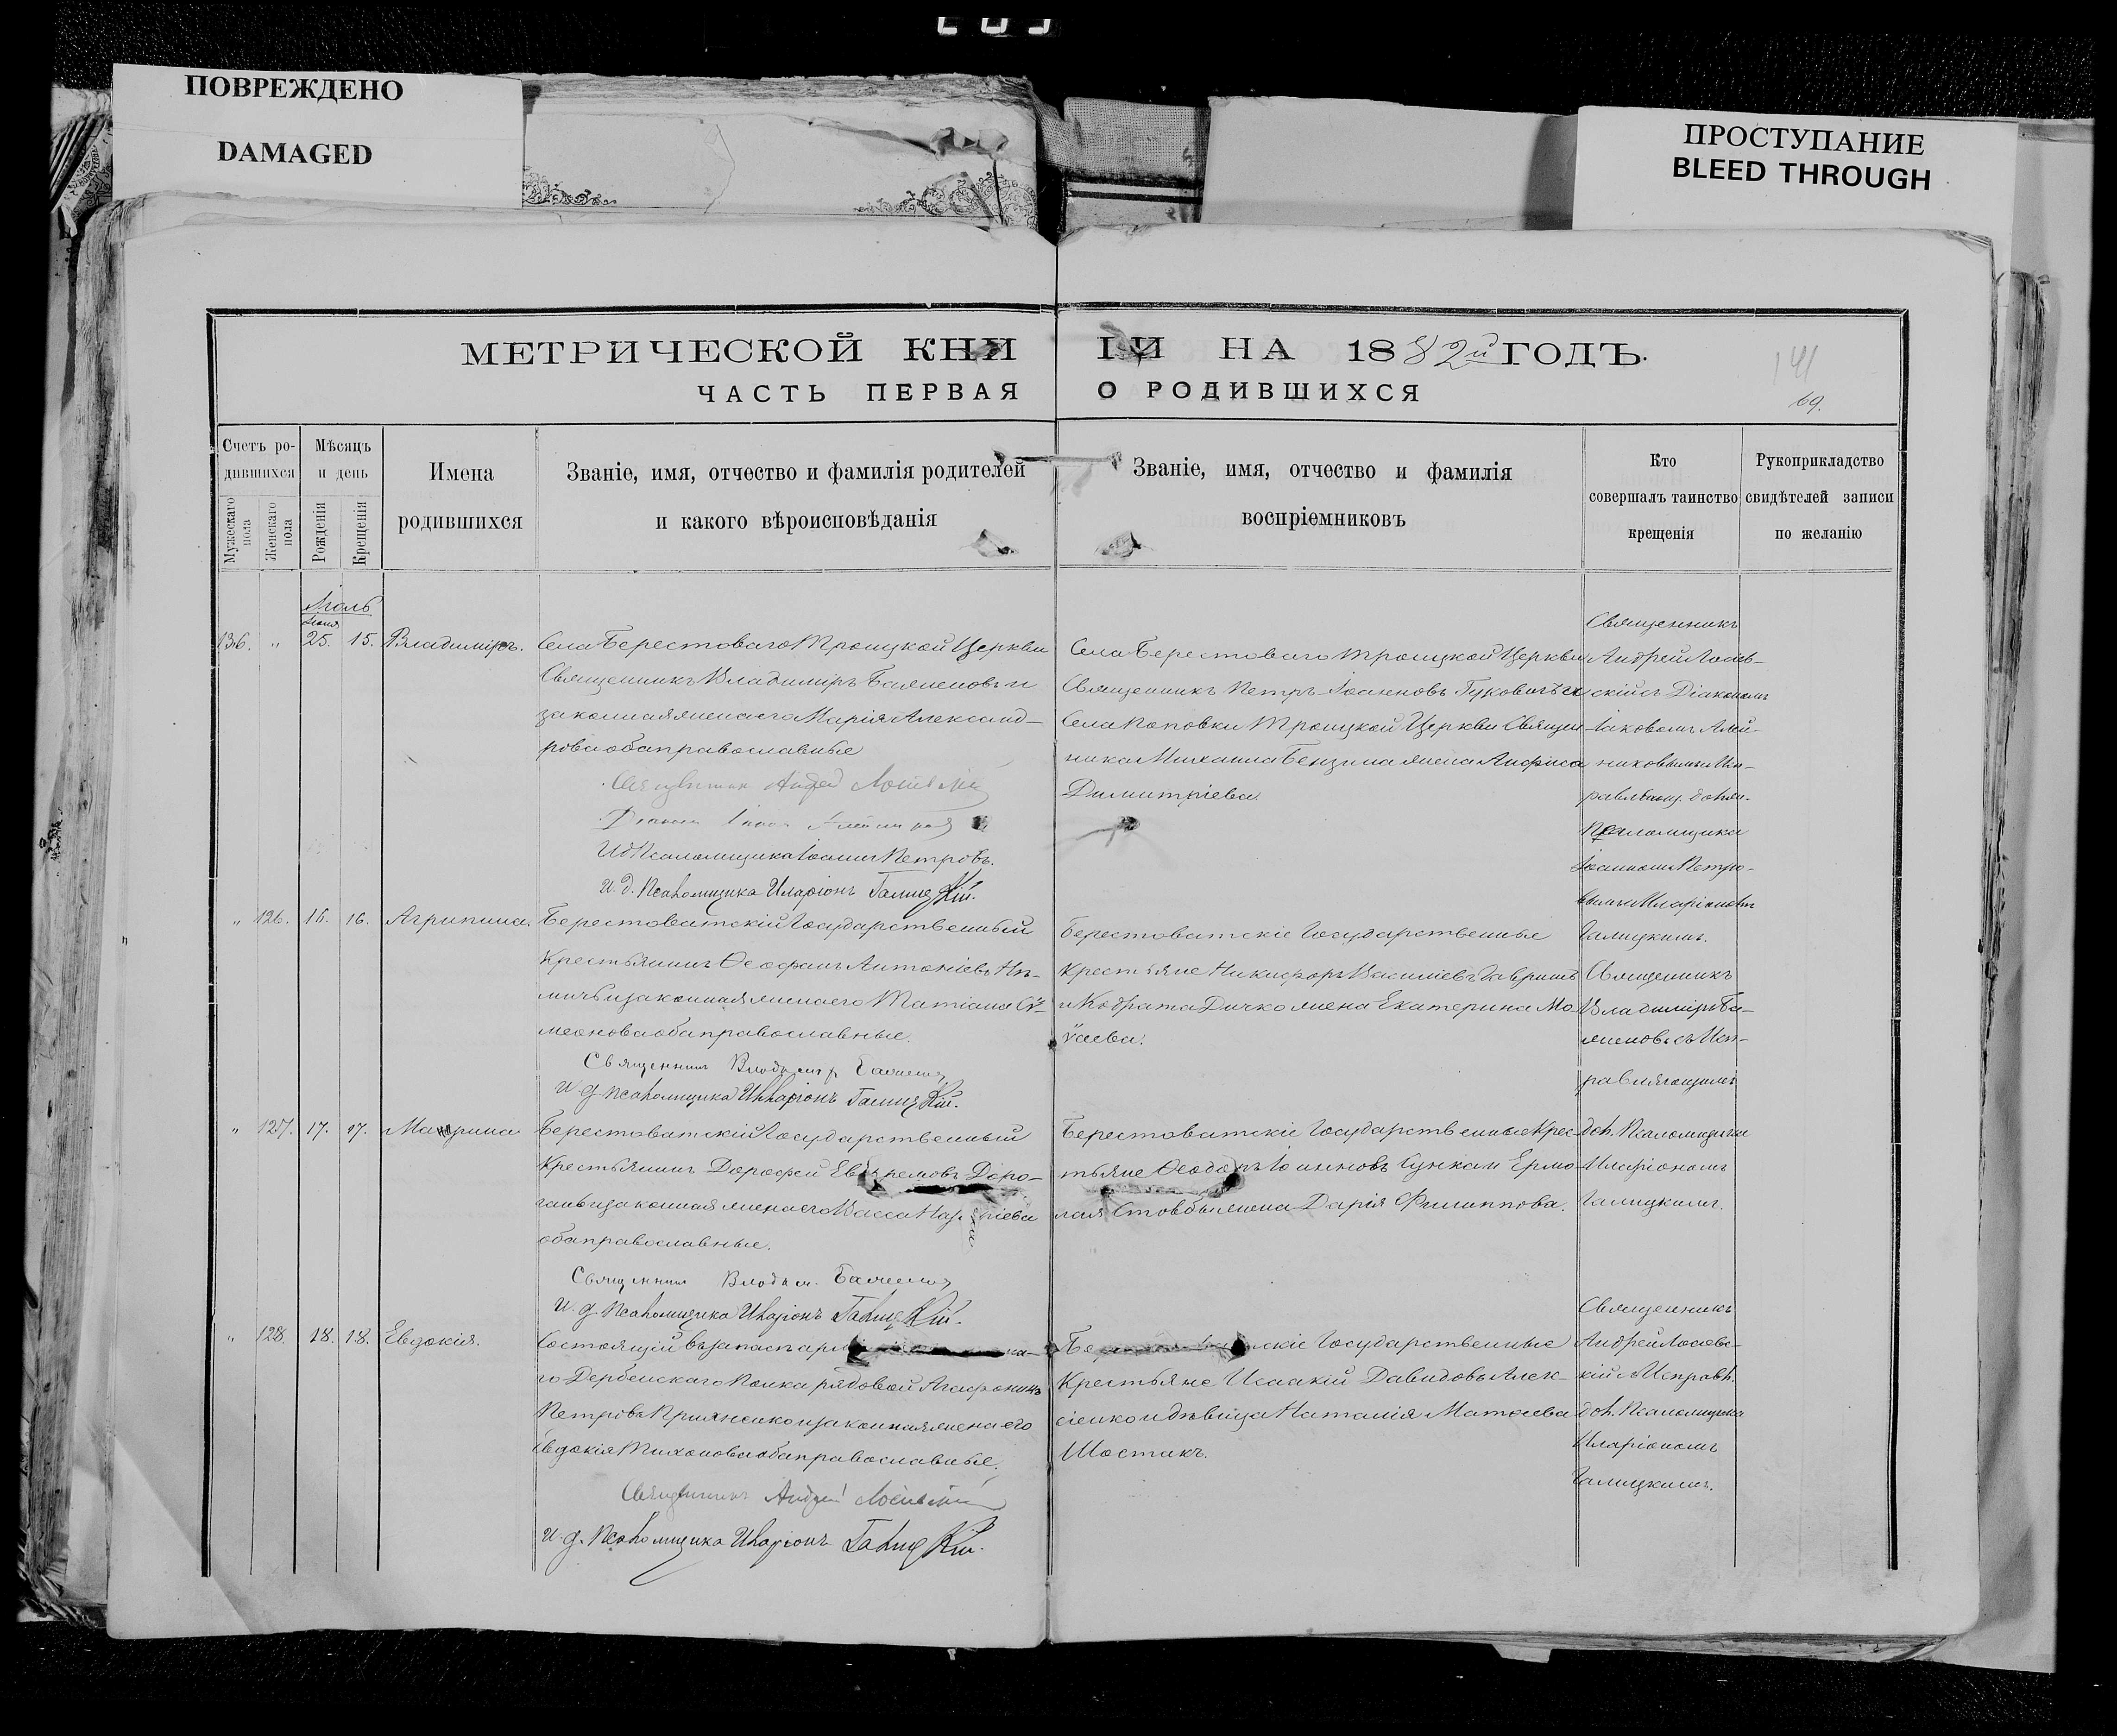 ПОВРЕЖДЕНО
DAMAGED
ПРОСТУПАНИЕ
BLEED THROUGH
МЕТРИЧЕСКОЙ КНИ ГИ НА 1882й ГОДЪ.
ЧАСТЬ ПЕРВАЯ О РОДИВШИХСЯ
141
69.
Счетъ ро-
дившихся
Мужескаго пола
Женскаго пола
Мѣсяцъ
и день
Рожденія
Крещенія
Имена
родившихся
Званіе, имя, отчество и фамилія родителей
и какого вѣроисповѣданія
Званіе, имя, отчество и фамилія
воспріемниковъ
Кто
совершалъ таинство
крещенія
Рукоприкладство
свидѣтелей записи
по желанію
Іюль
Іюня
136. " 25. 15. Владиміръ.
Села Берестоваго Троицкой Церкви
Священникъ Владиміръ Баженовъ и
законная жена его Марія Александ-
рова оба православные
Священник Андрей
Диакон Іаков
ИдПсаломщика Іоаннъ Петровъ.
И. д. Псаломщика Иларіонъ Галицкій.
Села Берестоваго Троицкой Церкви
Священникъ Петръ Іоанновъ Гуковичъ и
Села Поповки Троицкой Церкви Священ-
ника Михаила Бензина жена Анфиса
Димитріева.
Священникъ
Андрей Лосев-
скій съ Діакономъ
Іаковомъ Алей-
никовымъ и Ип-
Псаломщика
Іоанномъ Петро-
вымъ и Иларіономъ
Галицкимъ.
" 126. 16. 16. Агрипина.
Берестоватскій Государственный
Крестьянинъ Ѳеофанъ Антоніевъ
законная жена его Татіана Си-
меонова оба православные.
Священник Владимир Баженов
И. д. Псаломщика Иларіонъ Галицкій.
Берестоватскіе Государственные
Крестьяне Никифоръ Василіевъ Гаврышъ
и Кодрата Дичко жена Екатерина Мо-
ѵсеева.
Священникъ
Владиміръ Ба-
женовъ съ Исп-
равляющимъ
" 127. 17. 17. Мавгрина
Берестоватскій Государственный
Крестьянинъ Дорофей Евфремовъ Доро-
ганъ и законная жена его Васса
оба православные.
Священник Владим. Баженов
И. д. Псаломщика Иларіонъ Галицкій.
Берестоватскіе Государственные Крес-
тьяне Ѳеодоръ Іоанновъ и Ермо-
лая Стовбы жена Дарія Филиппова.
дол. Псаломщика
Иларіономъ
Галицкимъ.
" 128. 18. 18. Евдокія.
Состоящій въ запасѣ
го Дербенскаго Полка рядовой
Петровъ и законная жена его
Евдокія Тихонова оба православные.
Священникъ Андрей Лосевскій
И. д. Псаломщика Иларіонъ Галицкій.
скіе Государственные
Крестьяне Исаакій Давидовъ Алек-
сіенко и дѣвица Наталія Матѳеева
Шостакъ.
Священникъ
Андрей Лосевс-
кій съ Исправл.
дол. Псаломщика
Иларіономъ
Галицкимъ.